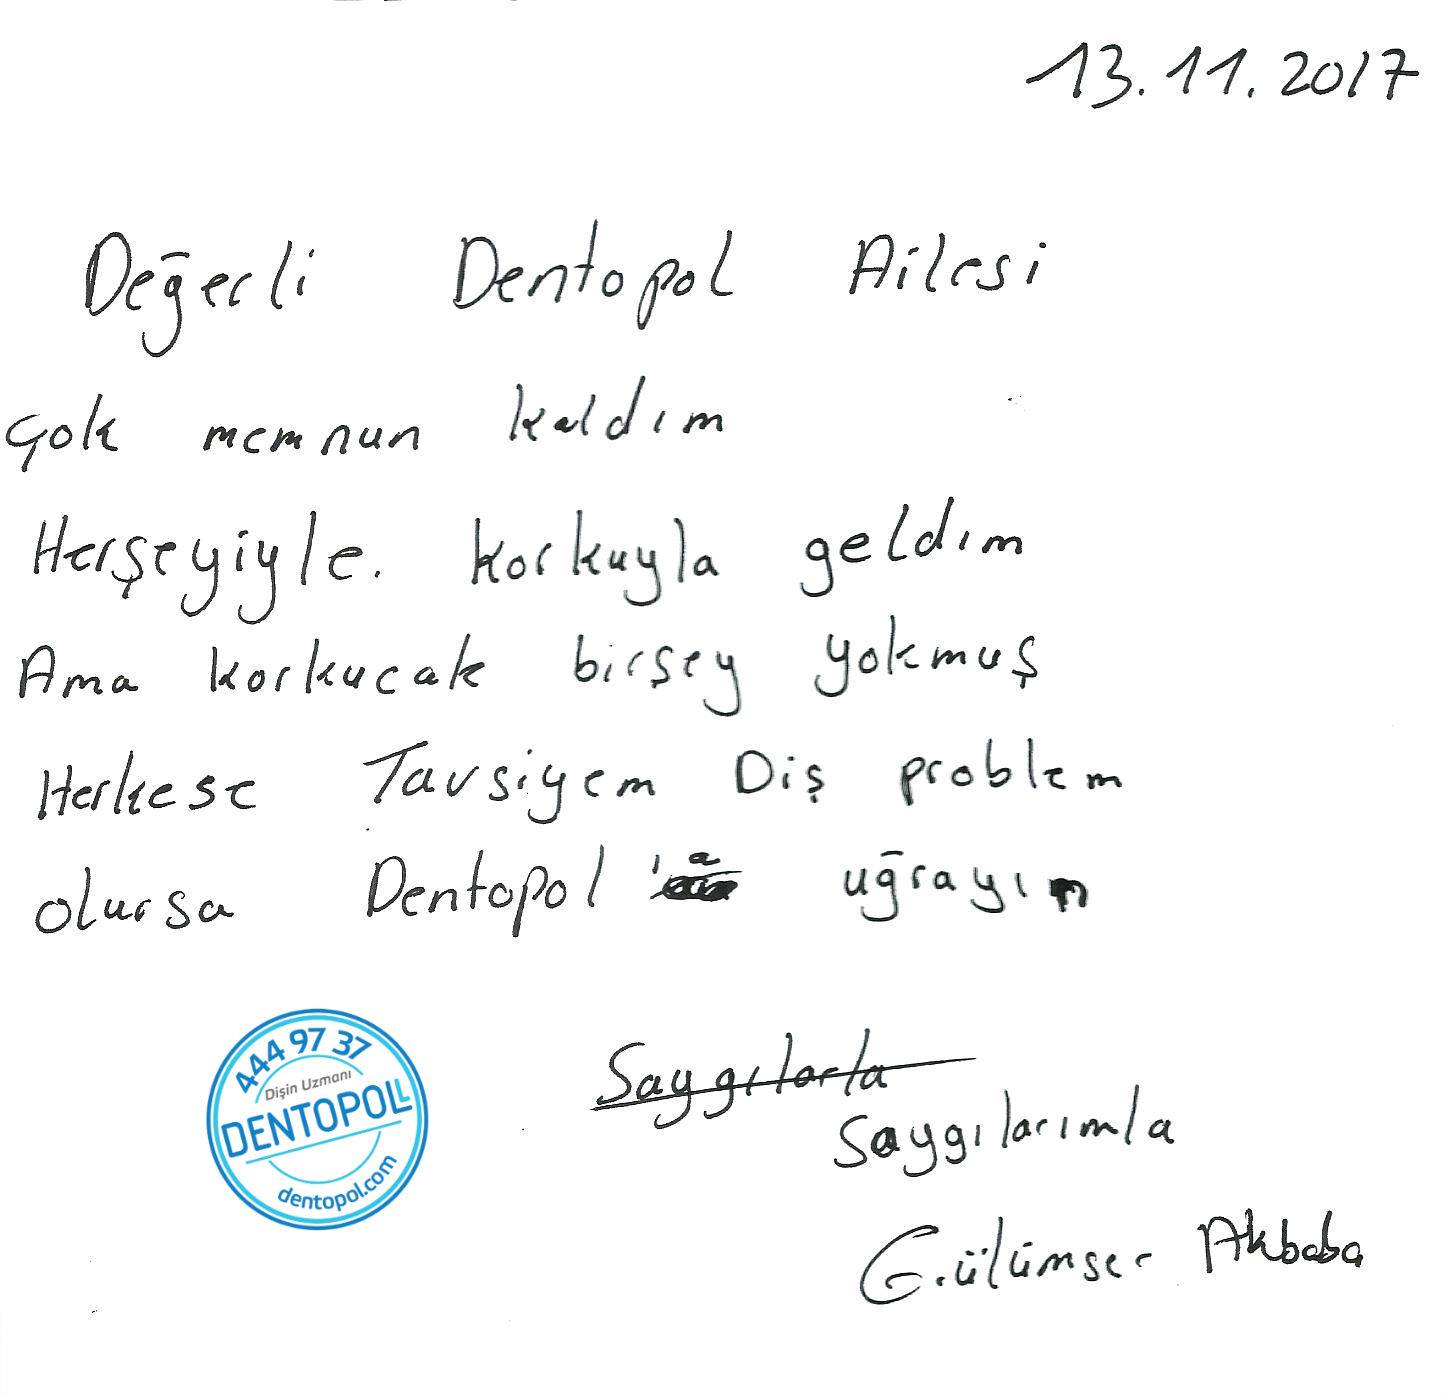 13.11.2017
Değerli Dentopol Ailesi
Çok memnun kaldım
Herşeyiyle. korkuyla geldım
Ama korkucak birşey yokmuş
Herkese Tavsiyem Diş problem
olursa Dentopol'a uğrayın
444 97 37
Dişin Uzmanı
DENTOPOL
dentopol.com
Saygılarla
Saygılarımla
Gülümser Akbaba